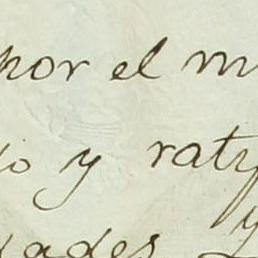 por el m
io y raty
dades y